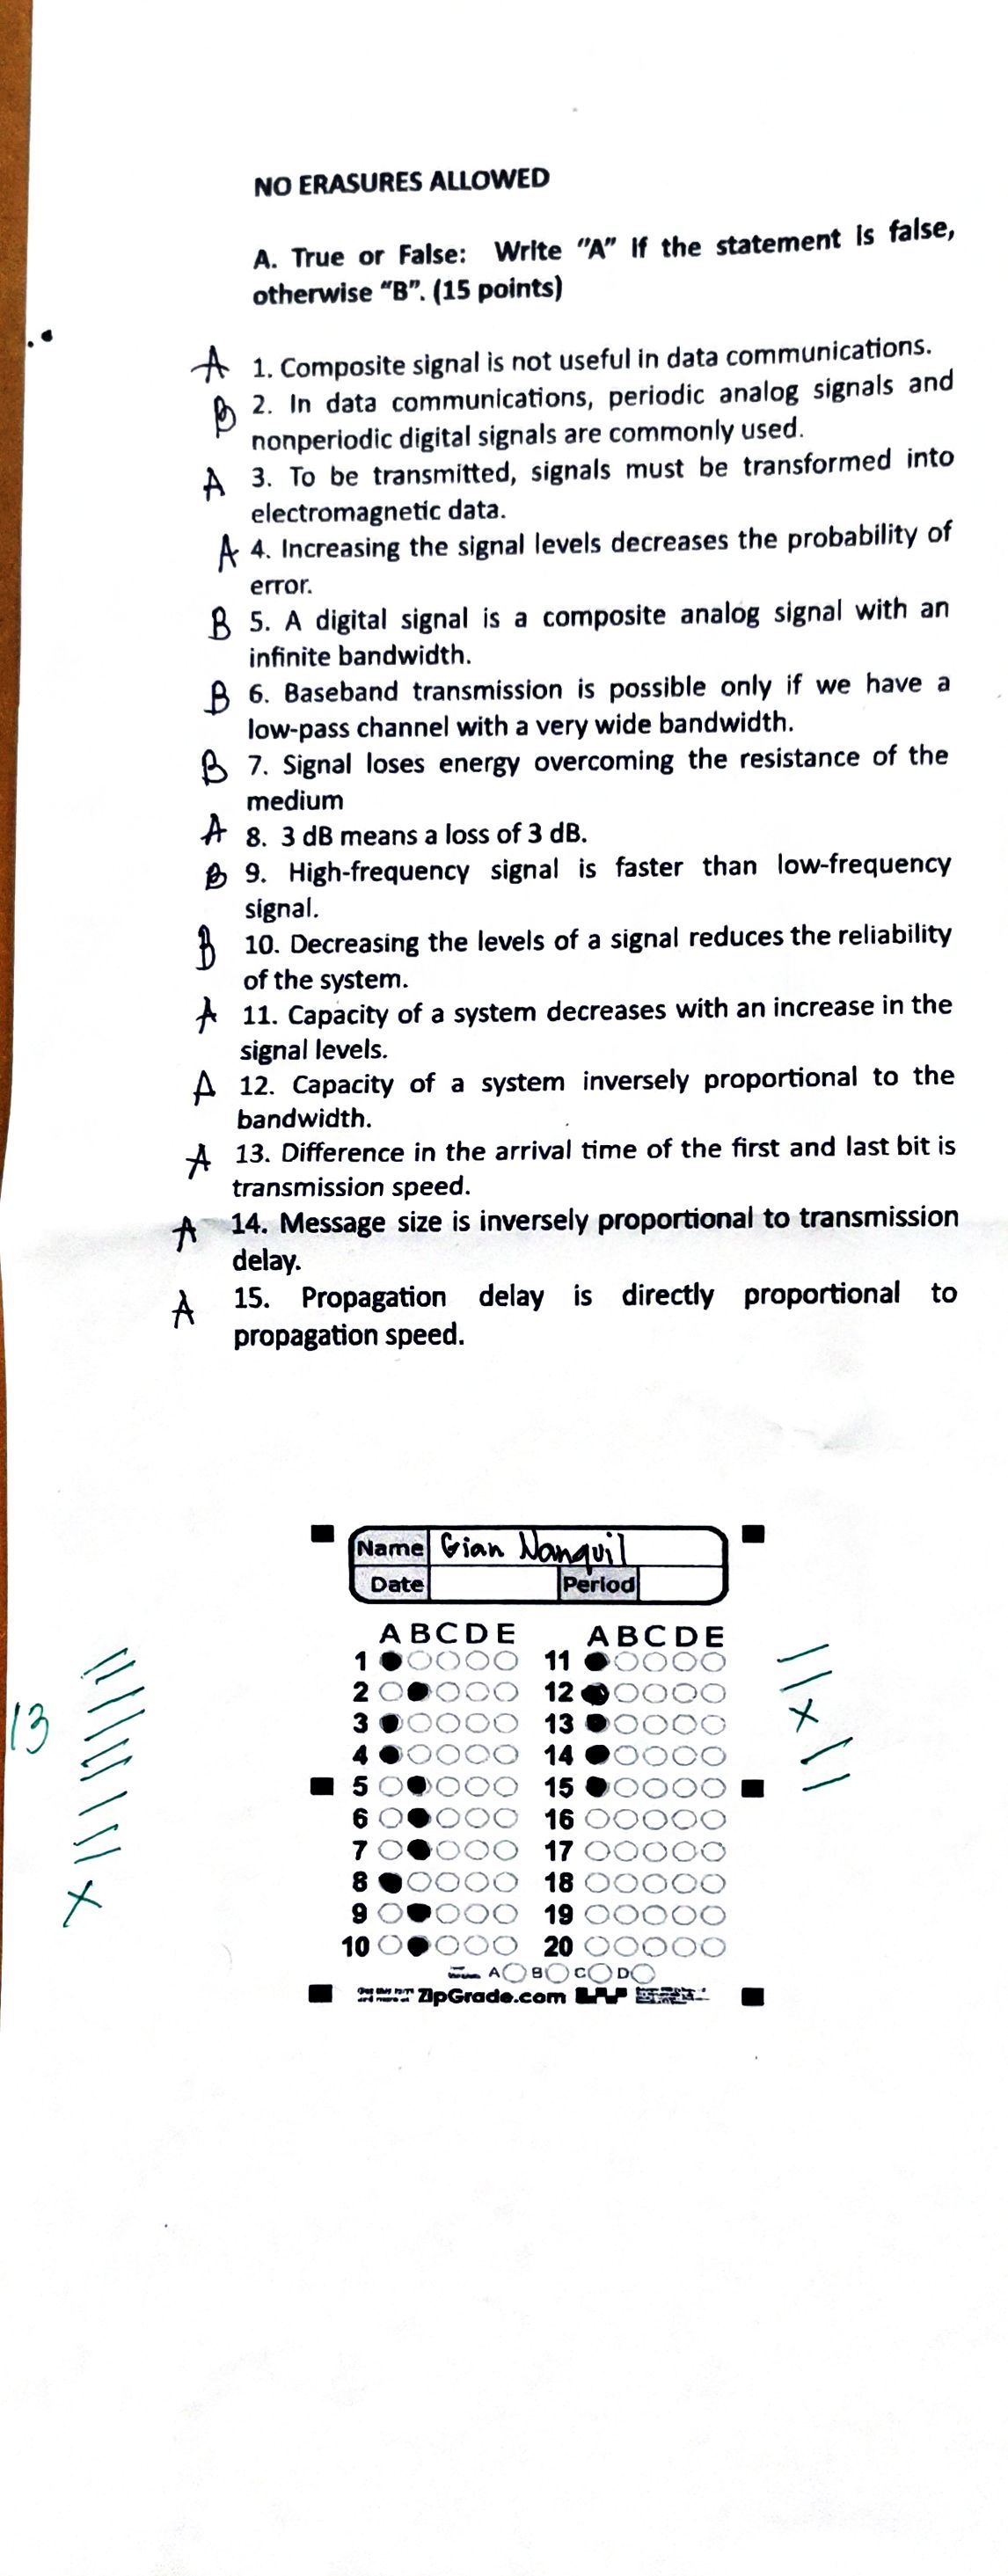 NO ERASURES ALLOWED
A. True or False: Write "A" if the statement is false,
otherwise "B". (15 points)
A 1. Composite signal is not useful in data communications.
B 2. In data communications, periodic analog signals and
nonperiodic digital signals are commonly used.
A 3. To be transmitted, signals must be transformed into
electromagnetic data.
A 4. Increasing the signal levels decreases the probability of
error.
B 5. A digital signal is a composite analog signal with an
infinite bandwidth.
B 6. Baseband transmission is possible only if we have a
low-pass channel with a very wide bandwidth.
B 7. Signal loses energy overcoming the resistance of the
medium
A 8. 3 dB means a loss of 3 dB.
B 9. High-frequency signal is faster than low-frequency
signal.
B 10. Decreasing the levels of a signal reduces the reliability
of the system.
A 11. Capacity of a system decreases with an increase in the
signal levels.
A 12. Capacity of a system inversely proportional to the
bandwidth.
A 13. Difference in the arrival time of the first and last bit is
transmission speed.
A 14. Message size is inversely proportional to transmission
delay.
A 15. Propagation delay is directly proportional to
propagation speed.
Name Gian Nanquil
Date Period
A B C D E A B C D E
1 11
2 12
13 3 13
4 14
5 15
6 16
7 17
8 18
9 19
10 20
A B C D
ZipGrade.com